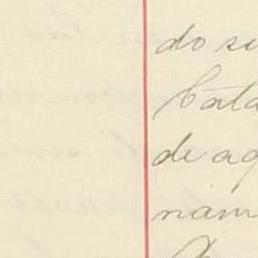 do su
Cata
de aq
nam